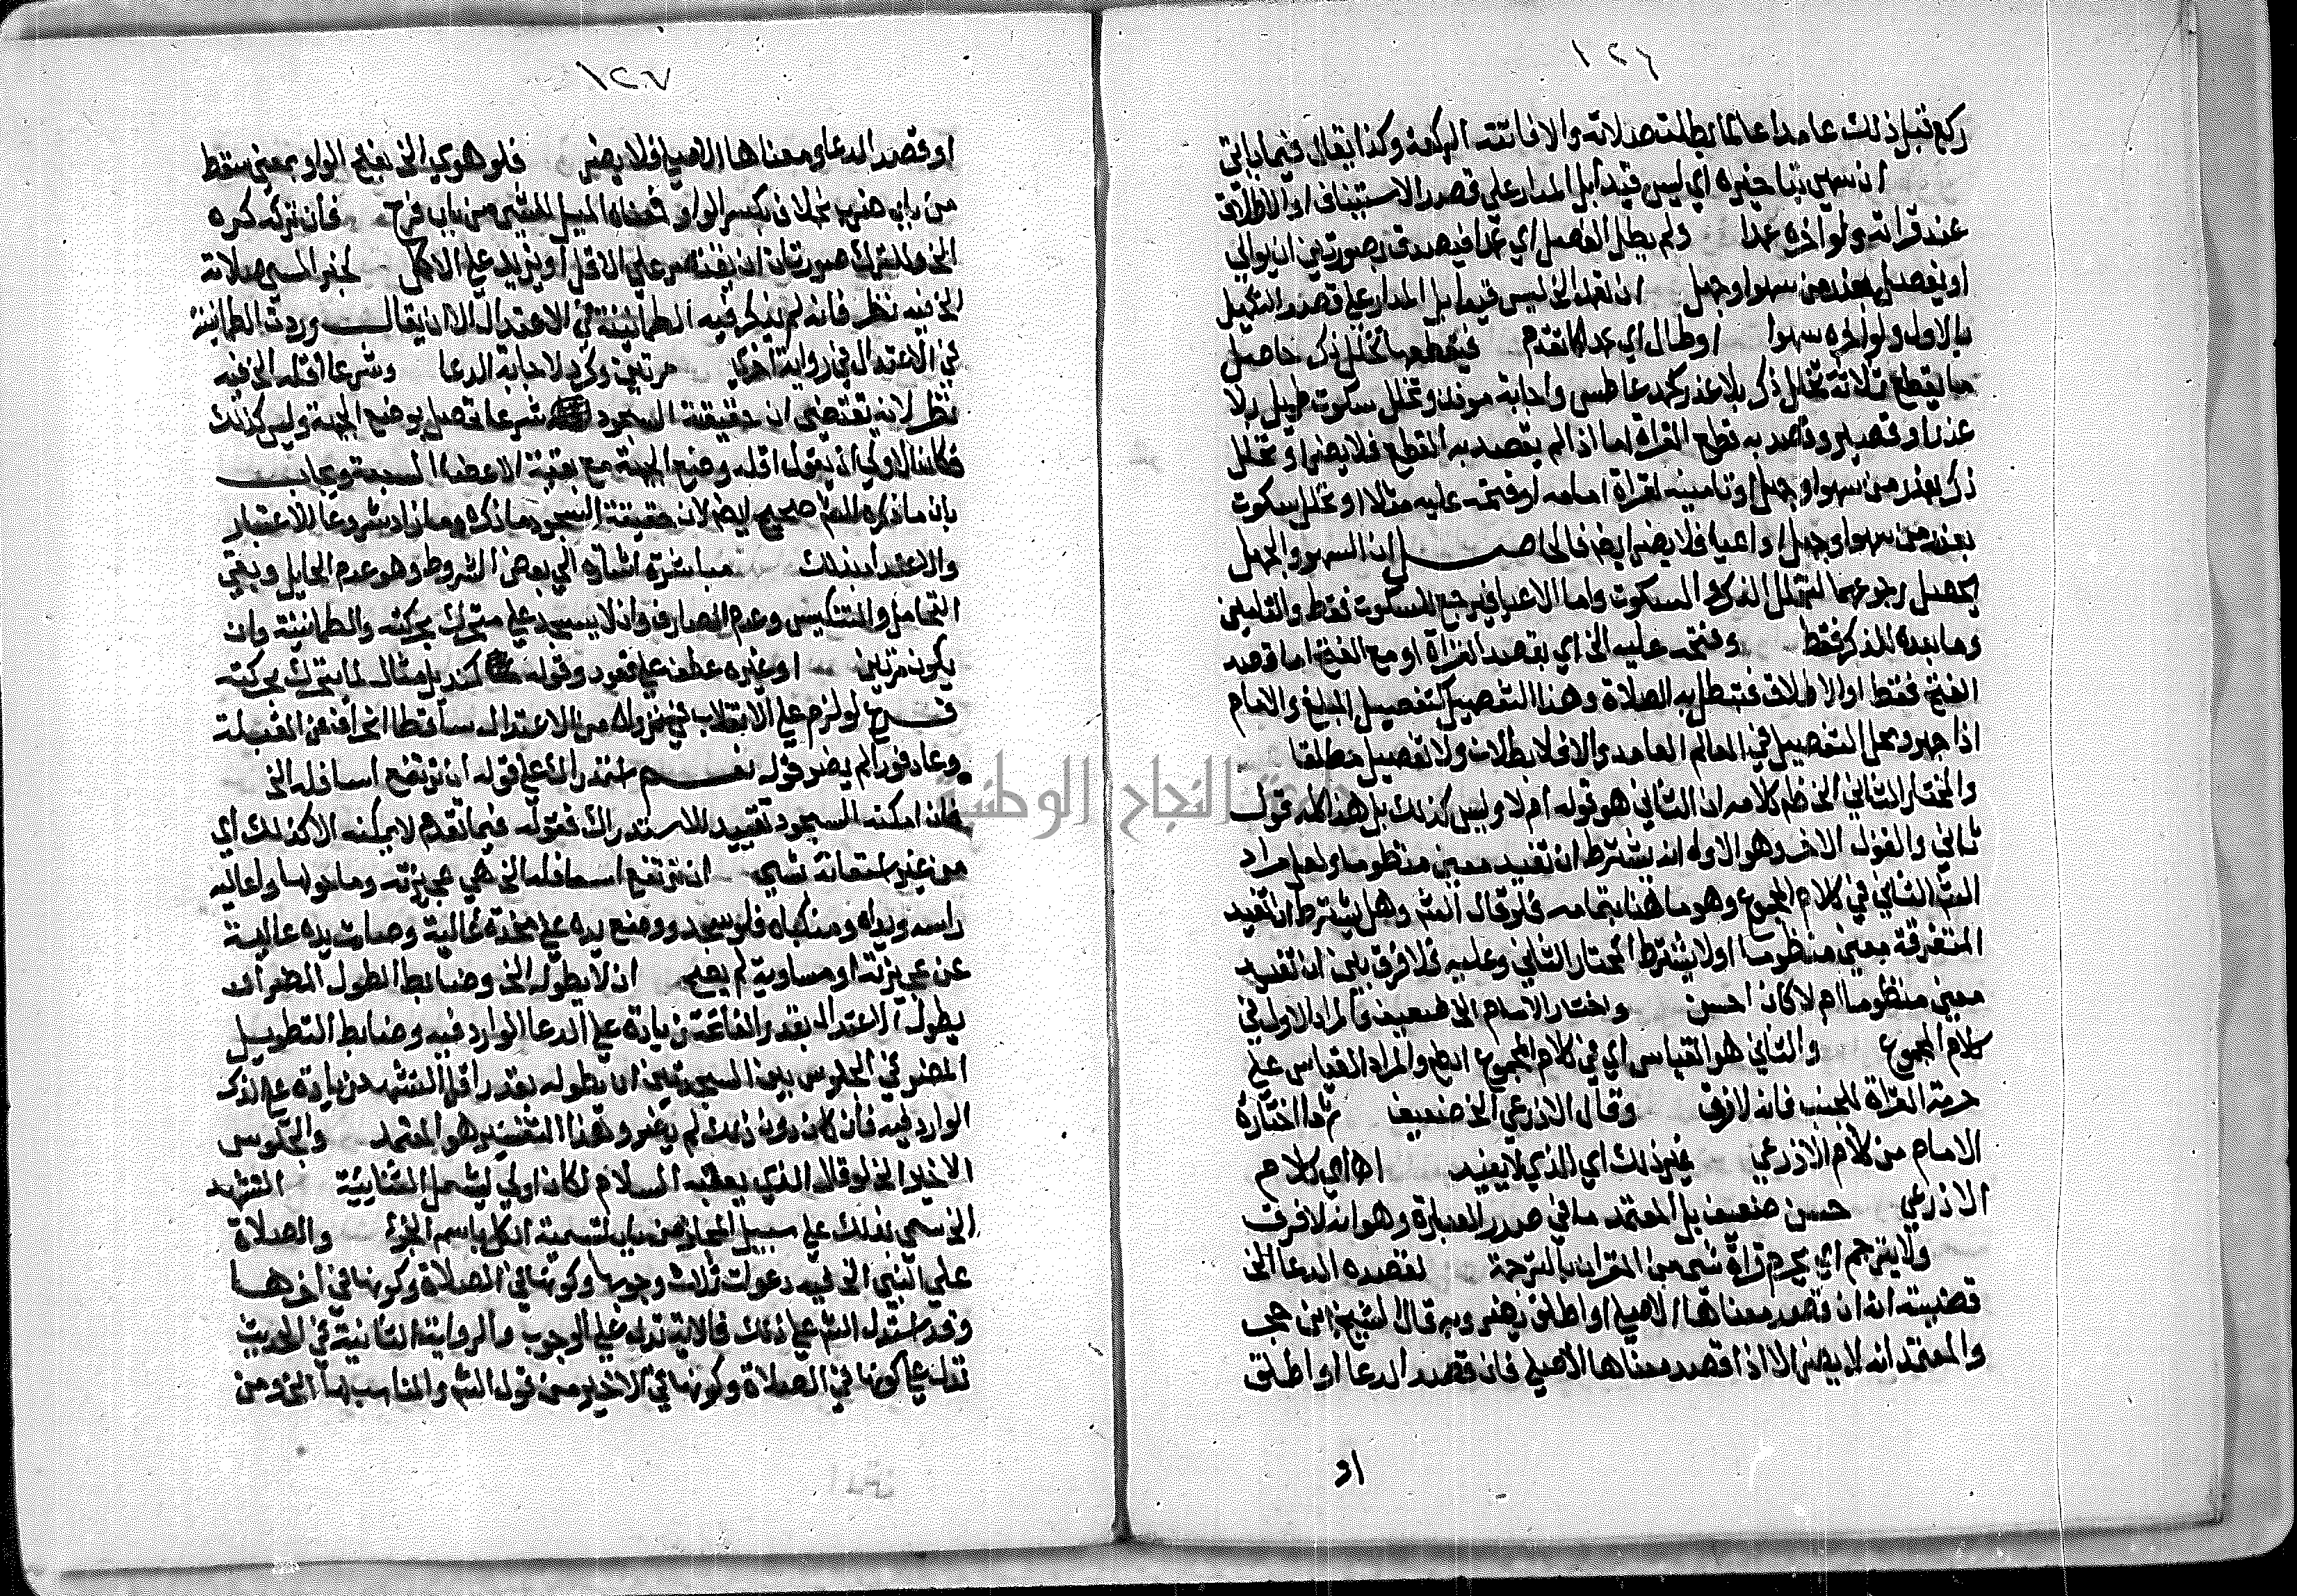 ١٢٦
ركع قبل ذلك عامدا عالما بطلت صلاته والا فاتته الركعة وكذا يقال فيما ياتي
ان سهى بتاخيره اي ليس قيدا بل المدار على قصد الاستيناف او الاطلاق
عند قراته ولو اخره عمدا ولم يطل الفصل اي عمدا فيصدق بصورتين ان يوالي
او يفصل بعذر من سهو او جهل ان تعمد الخ ليس قيدا بل المدار على قصد التكميل
بالاول ولو اخره سهوا او طال اي عمدا كما تقدم فيقطعها تخلل ذكر حاصل
ما يقطع ثلاثة تخلل ذكر بلا عذر كحمد عاطس واجابة موذن وتخلل سكوت طويل بلا
عذر او قصير وقصد به قطع القراة اما اذا لم يقصد به القطع فلا يضر او تخلل
ذكر بعذر من سهو او جهل او تامينه لقراة امامه او فتحه عليه مثلا او تخلل سكوت
بعذر من سهو او جهل او اعيا فلا يضر ايضا فالحاصل ان السهو والجهل
يحصل رجوعهما لتخلل الذكر والسكوت واما الاعيا فيرجع للسكوت فقط والتامين
وما بعده للذكر فقط وفتحه عليه الخ اي بقصد القراة او مع الفتح اما قصد
الفتح فقط او الاطلاق فتبطل به الصلاة وهذا التفصيل كتفصيل المبلغ والامام
اذا جهر ومحل التفصيل في العالم العامد والا فلا بطلان ولا تفصيل مطلقا
والمختار الثاني الخ ظاهر كلامه ان الثاني هو قوله ام لا وليس كذلك بل هذا كله قول
ثاني والقول الاخر وهو الاول انه يشترط ان تفيد معنى منظوما ولعل مراد
الشم الثاني في كلام المجموع وهو ما هنا بتمامه فلو قال الشم وهل يشترط ان تفيد
المتفرقة معنى منظوما او لا يشترط المختار الثاني وعليه فلا فرق بين ان تفيد
معنى منظوما ام لا كان احسن واختار الامام الخ ضعيف والمراد الاول في
كلام المجموع والثاني هو القياس اي في كلام المجموع ايضا والمراد القياس على
حرمة القراة للجنب فانه لا فرق وقال الاذرعي الخ ضعيف ثم ما اختاره
الامام من كلام الاذرعي غير ذلك اي الذي لا يفيد اه اي كلام
الاذرعي حسن ضعيف بل المعتمد ما في صدر العبارة وهو انه لا فرق
ولا يترجم اي يحرم قراة شي من القران بالترجمة لقصده الدعا الخ
قضيته انه ان قصد معناها الاصلي او اطلق يضر وبه قال الشيخ ابن حجر
والمعتمد انه لا يضر الا اذا قصد معناها الاصلي فان قصد الدعا او اطلق
او
١٢٧
او قصد الدعا ومعناها الاصلي فلا يضر فلو هوى الخ بفتح الواو بمعنى سقط
من باب ضرب بخلاف بكسر الواو فمعناه الميل للشي من باب فرح فان تركه كره
الخ وللترك صورتان ان يقتصر على الاقل او يزيد على الاكمل لخبر المسي صلاته
الخ فيه نظر فانه لم يذكر فيه الطمانينة في الاعتدال الا ان يقال وردت الطمانينة
في الاعتدال في رواية اخرى مرتين وكرر لاجابة الدعا وشرعا اقله الخ فيه
نظر لانه يقتضي ان حقيقة السجود شرعا تحصل بوضع الجبهة وليس كذلك
فكان الاولى ان يقول اقله وضع الجبهة مع بقية الاعضا السبعة ويجاب
بان ما ذكره الشم صحيح ايضا لان حقيقة السجود ما ذكره وما زاد شروعا للاعتبار
والاعتداد بذلك مباشرة اشارة الى بعض الشروط وهو عدم الحايل وبقي
التحامل والتنكيس وعدم الصارف وان لا يسجد على متحرك بحركته والطمانينة وان
يكون مرتين او غيره عطف على قعود وقوله كمنديل مثال لما يتحرك بحركته
فرع لو لزم على الانقلاب في نزوله من الاعتدال ساقطا انحرافه عن القبلة
وعاد فورا لم يضر قوله نعم استدراك على قوله ان ترتفع اسافله الخ
فان امكنه السجود تقييد للاستدراك فقوله فيما تقدم لا يمكنه الا كذلك اي
من غير استعانة بشي ان ترتفع اسافله الخ هي عجيزته وما حولها واعاليه
راسه ويداه ومنكباه فلو سجد ووضع يده على مخدة عالية وصارت يده عالية
عن عجيزته او مساوية لم يصح ان لا يطوله الخ وضابط الطول المضر ان
يطول الاعتدال بقدر الفاتحة زيادة على الدعا الوارد فيه وضابط التطويل
المضر في الجلوس بين السجدتين ان يطوله بقدر اقل التشهد زيادة على الذكر
الوارد فيه فان كان دون ذلك لم يضر وهذا التفسير هو المعتمد والجلوس
الاخير الخ لو قال الذي يعقبه السلام لكان اولى ليشمل الثنائية التشهد
الخ سمي بذلك على سبيل المجاز من باب تسمية الكل باسم الجزء والصلاة
على النبي الخ فيه دعوات ثلاث وجوبها وكونها في الصلاة وكونها في اخرها
وقد استدل الشم على ذلك فالاية تدل على الوجوب والرواية الثانية في الحديث
تدل على كونها في الصلاة وكونها في الاخير من قول الشم والمناسب لها الخ ومن
جامعة النجاح الوطنية